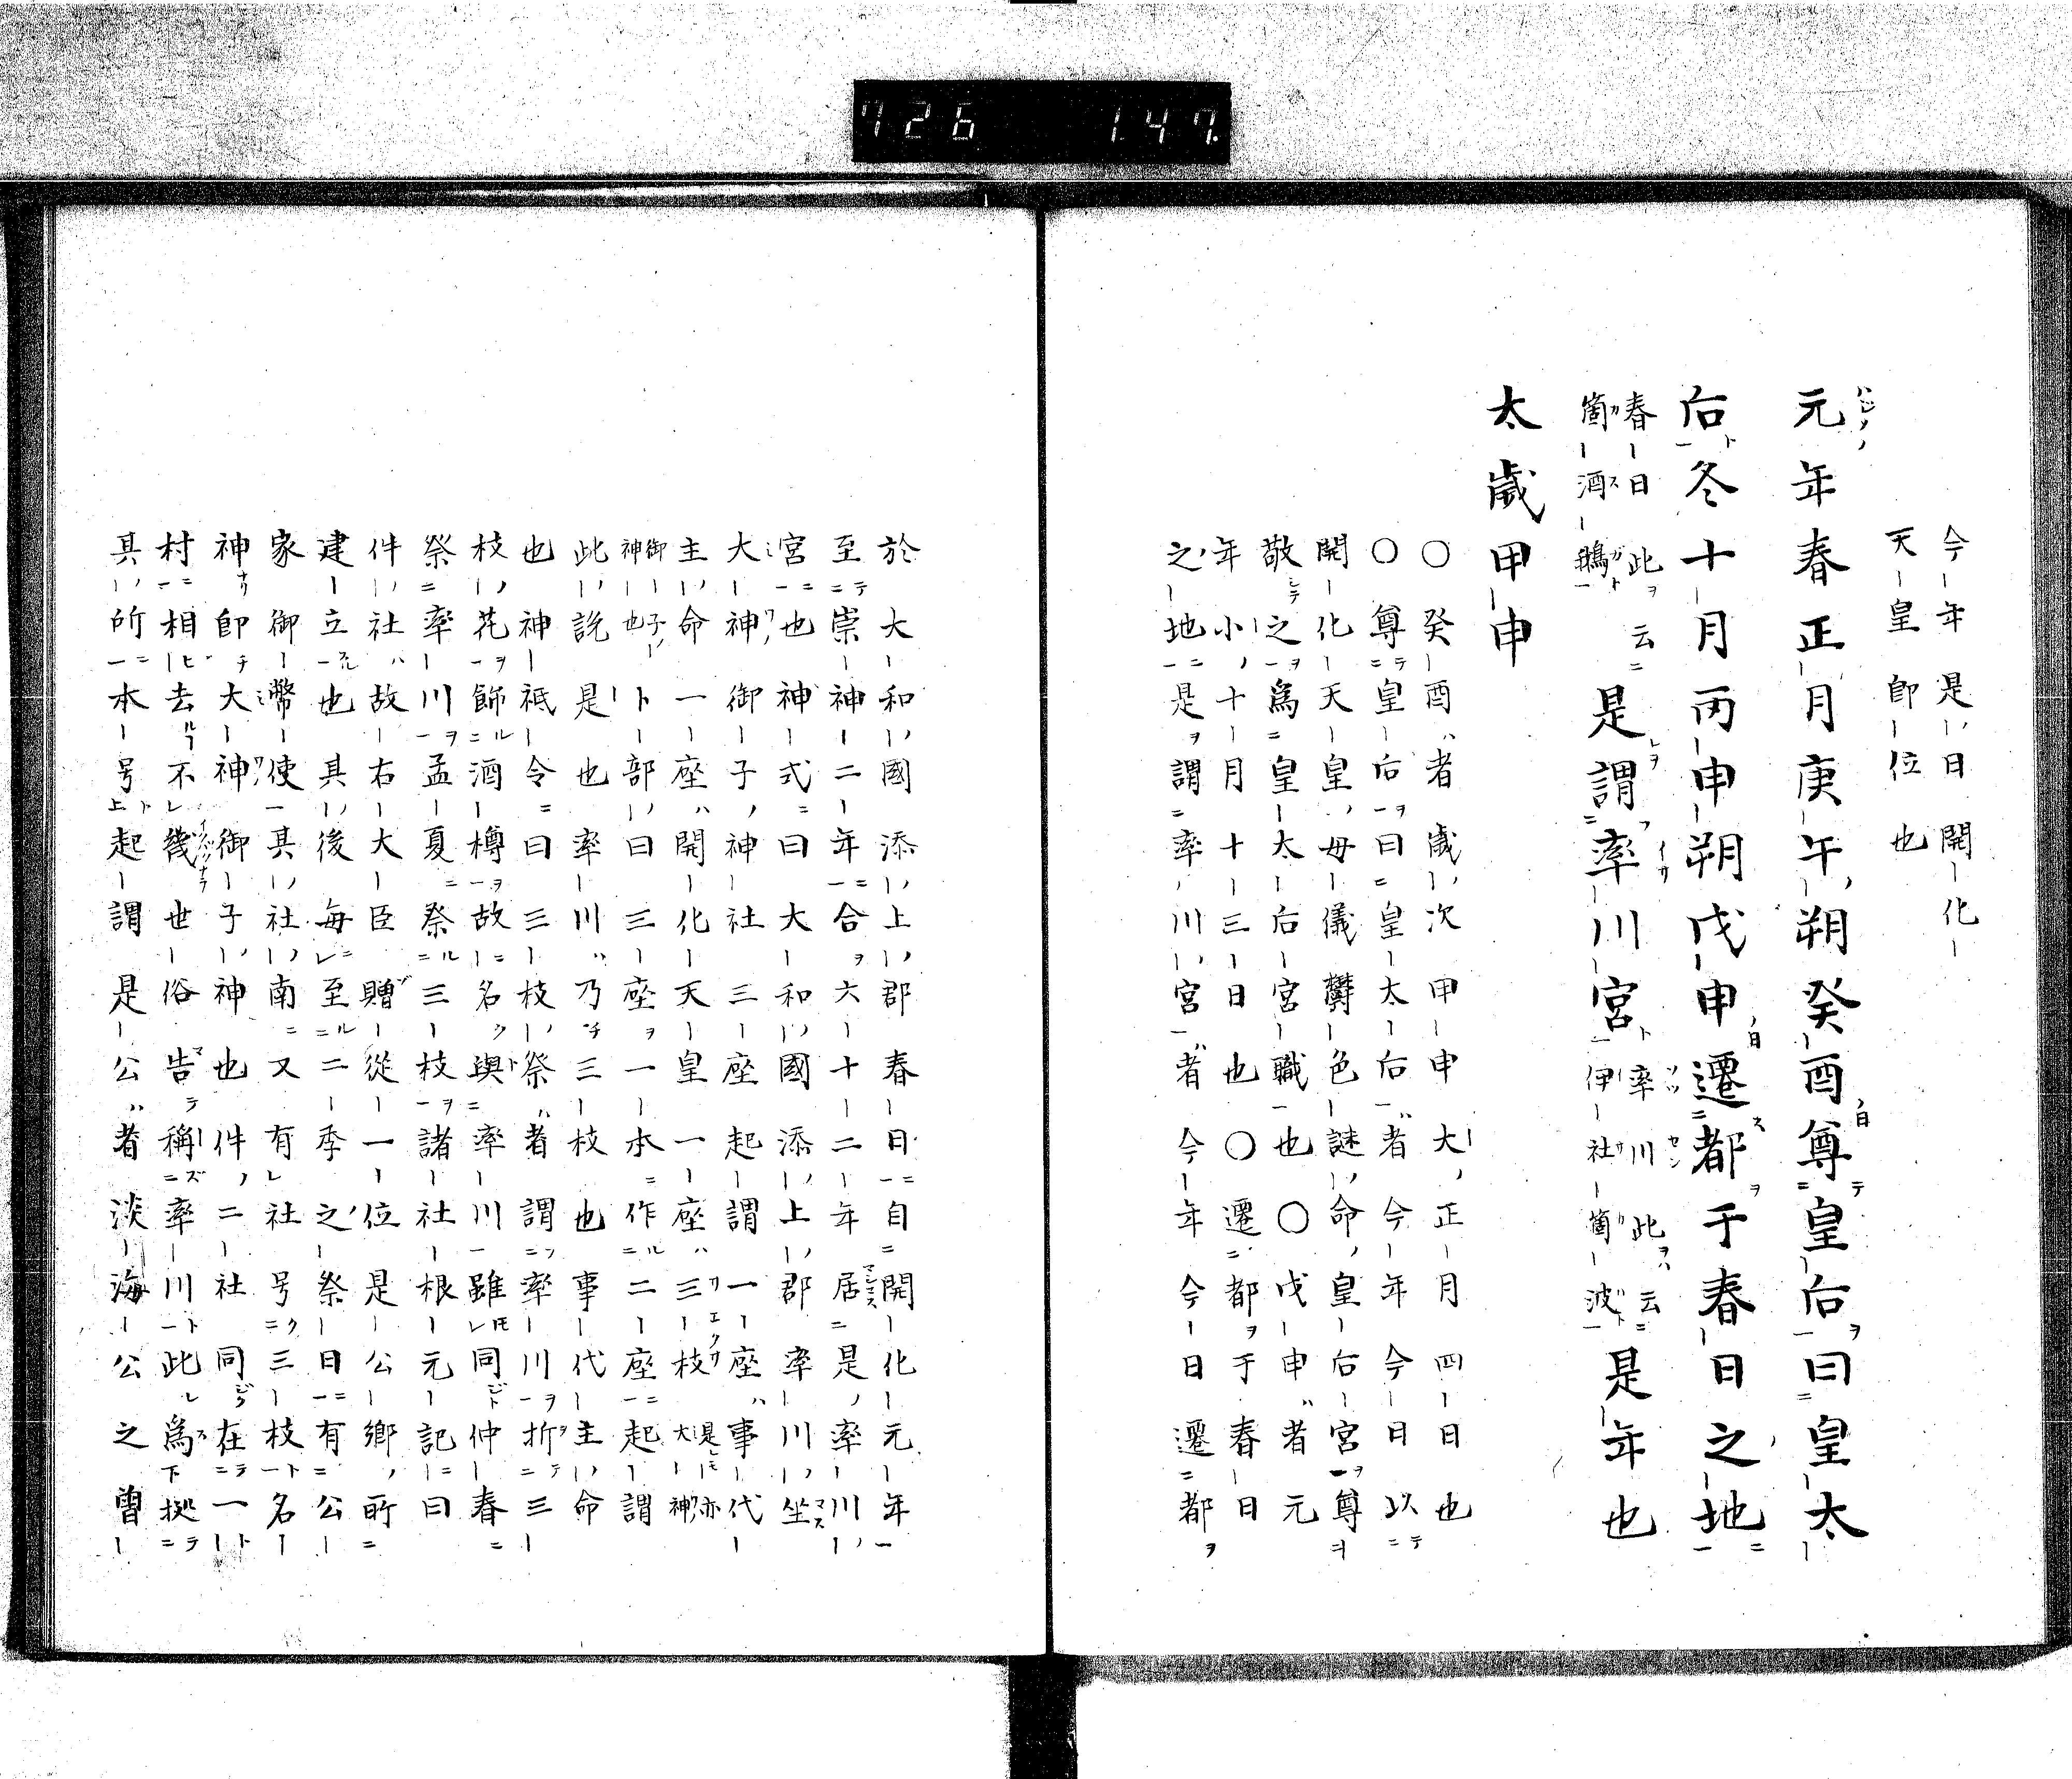 726 147.
今年是日開化
天皇即位也
元年春正月庚午朔癸酉尊皇后曰皇太
后冬十月丙申朔戊申遷都于春日之地
春日此云
箇酒鵝
是謂率川宮
率川此云
伊社箇波
是年也
太歲甲申
○癸酉者歲次甲申大正月四日也
○尊皇后曰皇太后者今年今日以
開化天皇母儀欝色謎命皇后宮尊
敬之爲皇太后宮職也○戊申者元
年小十月十三日也○遷都于春日
之地是謂率川宮者今年今日遷都
於大和國添上郡春日自開化元年
至崇神二年合六十二年居是率川
宮也神式曰大和國添上郡率川坐
大神御子神社三座起謂一座事代
主命一座開化天皇一座三枝
是亦
大神
御子
神也
卜部曰三座一本作二座起謂
此說是也率川乃三枝也事代主命
也神祇令曰三枝祭者謂率川折三
枝花飾酒樽故名與率川雖同仲春
祭率川孟夏祭三枝諸社根元記曰
件社故右大臣贈從一位是公鄉所
建立也其後每至二季之祭日有公
家御幣使其社南又有社号三枝名
神即大神御子神也件二社同在一
村相去不幾世俗吿稱率川此爲拠
其所本号起謂是公者淡海公之曽